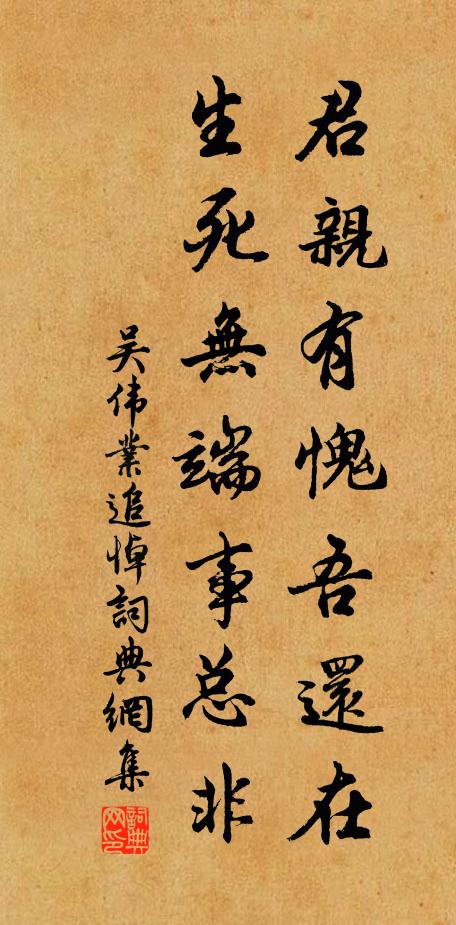 君親有愧吾還在
生死無端事总非
吴伟業追悼詞典網集
詞典網印